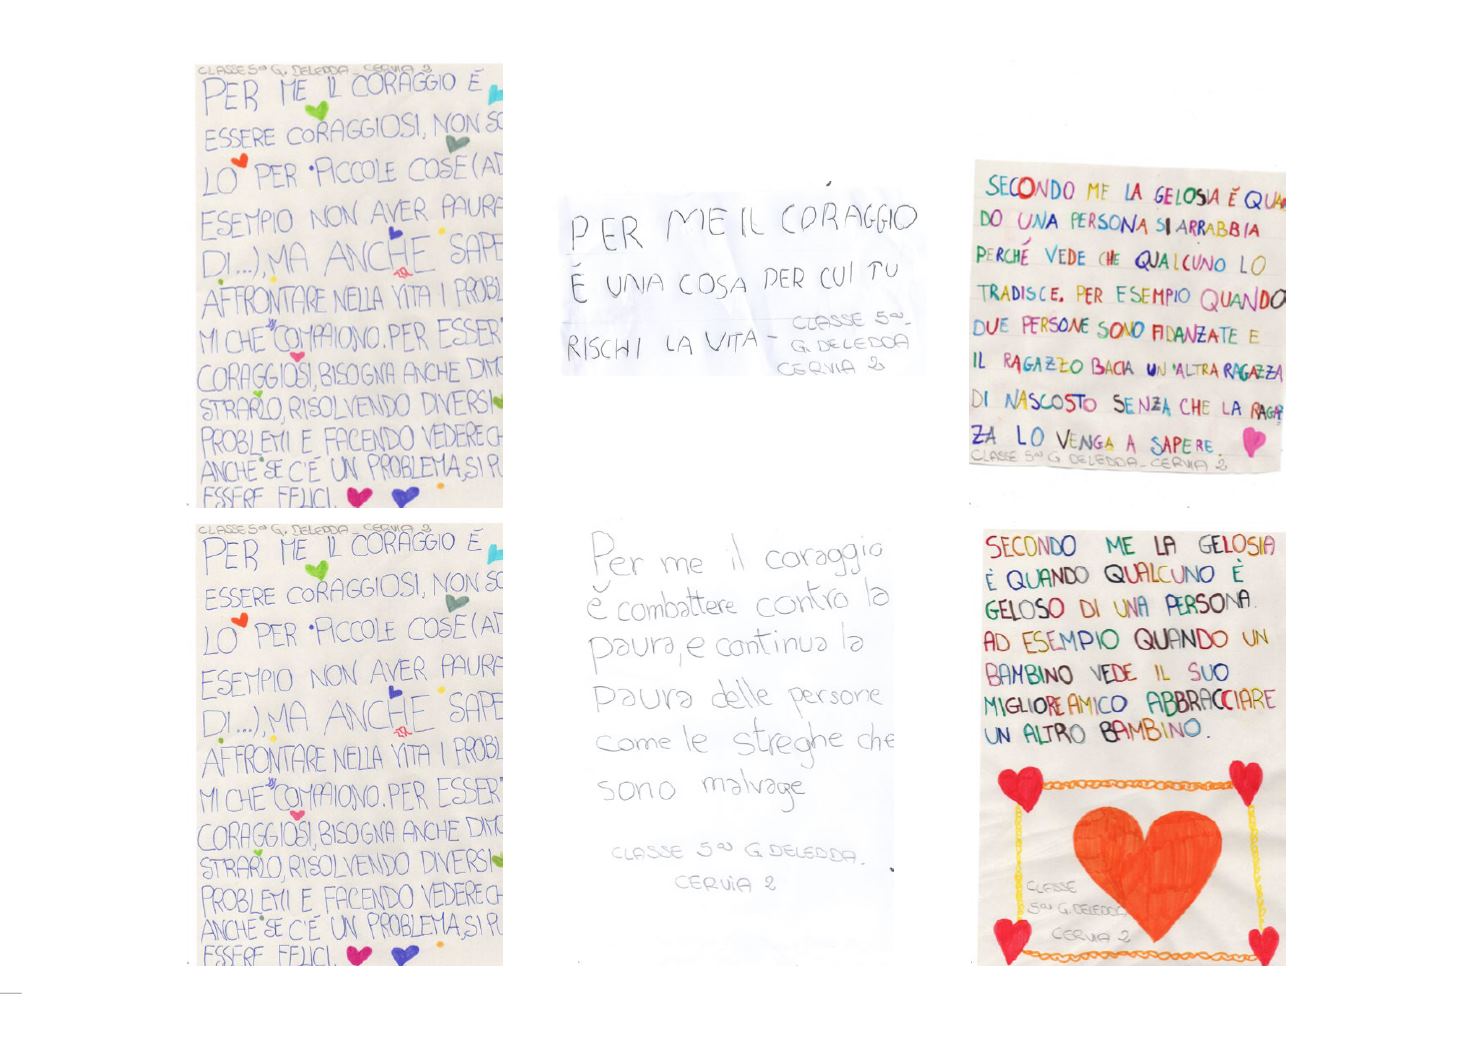 CLASSE 5ª G. DELEDDA - CERVIA 2
PER ME IL CORAGGIO É
ESSERE CORAGGIOSI, NON SO
LO PER PICCOLE COSE (AD
ESEMPIO NON AVER PAURA
DI...), MA ANCHE SAPE
AFFRONTARE NELLA VITA I PROBL
MI CHE COMPAIONO. PER ESSER
CORAGGIOSI, BISOGNA ANCHE DIMO
STRARLO, RISOLVENDO DIVERSI
PROBLEMI E FACENDO VEDERE CH
ANCHE SE C'É UN PROBLEMA, SI PU
ESSERE FELICI.
PER ME IL CORAGGIO
É UNA COSA PER CUI TU
RISCHI LA VITA -
CLASSE 5ª
G. DELEDDA
CERVIA 2
SECONDO ME LA GELOSIA É QUAN
DO UNA PERSONA SI ARRABBIA
PERCHÉ VEDE CHE QUALCUNO LO
TRADISCE. PER ESEMPIO QUANDO
DUE PERSONE SONO FIDANZATE E
IL RAGAZZO BACIA UN'ALTRA RAGAZZA
DI NASCOSTO SENZA CHE LA RAGAZ
ZA LO VENGA A SAPERE.
CLASSE 5ª G. DELEDDA - CERVIA 2
CLASSE 5ª G. DELEDDA - CERVIA 2
PER ME IL CORAGGIO É
ESSERE CORAGGIOSI, NON SO
LO PER PICCOLE COSE (AD
ESEMPIO NON AVER PAURA
DI...), MA ANCHE SAPE
AFFRONTARE NELLA VITA I PROBL
MI CHE COMPAIONO. PER ESSER
CORAGGIOSI, BISOGNA ANCHE DIMO
STRARLO, RISOLVENDO DIVERSI
PROBLEMI E FACENDO VEDERE CH
ANCHE SE C'É UN PROBLEMA, SI PU
ESSERE FELICI.
Per me il coraggio
è combattere contro la
paura, e continua la
paura delle persone
come le streghe che
sono malvage
CLASSE 5ª G. DELEDDA.
CERVIA 2
SECONDO ME LA GELOSIA
È QUANDO QUALCUNO È
GELOSO DI UNA PERSONA.
AD ESEMPIO QUANDO UN
BAMBINO VEDE IL SUO
MIGLIORE AMICO ABBRACCIARE
UN ALTRO BAMBINO.
CLASSE
5ª G. DELEDDA
CERVIA 2